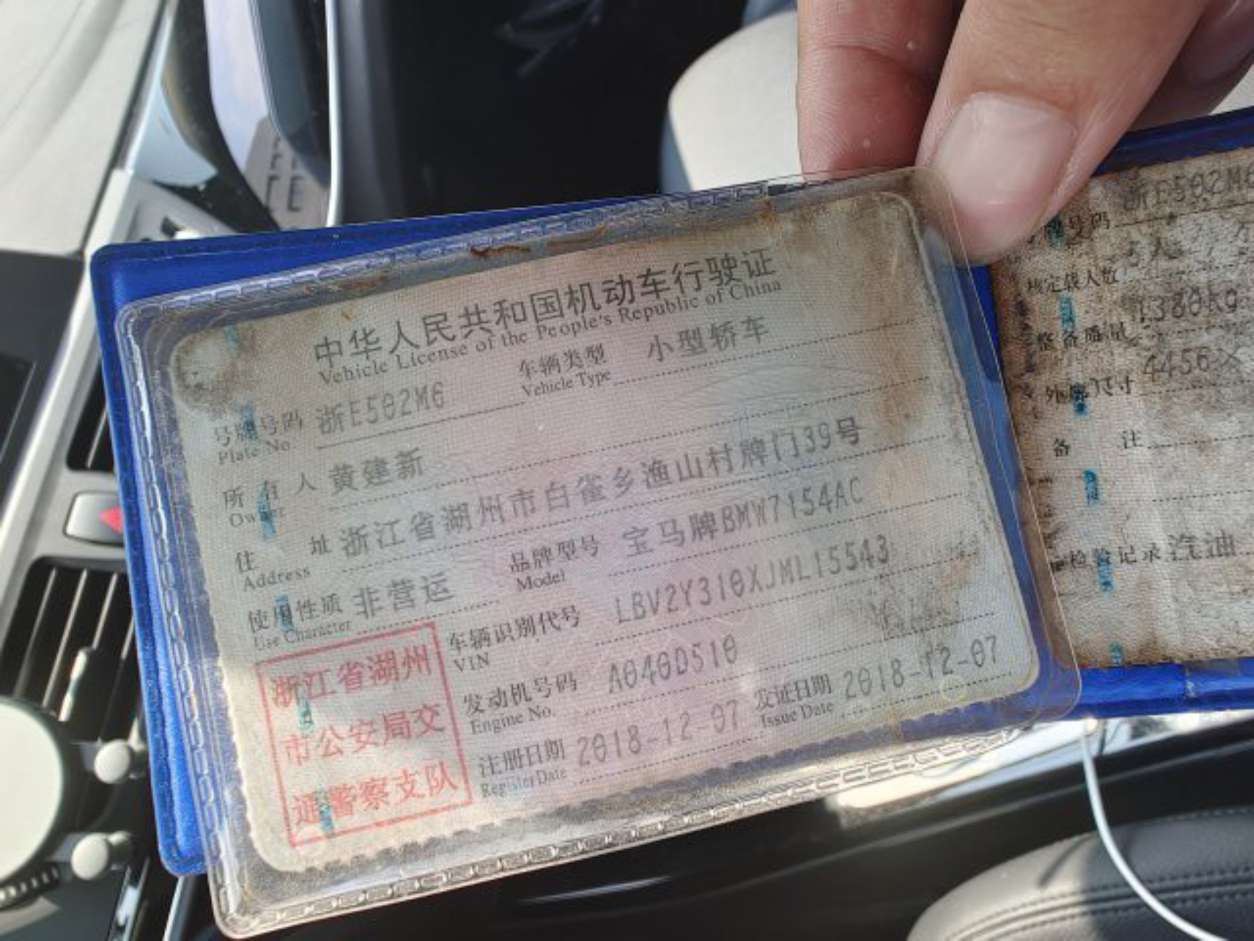 中华人民共和国机动车行驶证
Vehicle License of the People's Republic of China
号牌号码 浙E502M6 车辆类型 小型轿车
Plate No Vehicle Type
所有人 黄建新
Owner
住 址 浙江省湖州市白雀乡渔山村牌门39号
Address
使用性质 非营运 品牌型号 宝马牌BMW7154AC
Use Character Model
车辆识别代号 LBV2Y310XJML15543
VIN
发动机号码 A040D510
Engine No.
注册日期 2018-12-07 发证日期 2018-12-07
Register Date Issue Date
浙江省湖州
市公安局交
通警察支队
号码 浙E502M
核定载人数
整备质量 1380kg
外廓尺寸 4456×
备 注
检验记录 汽油